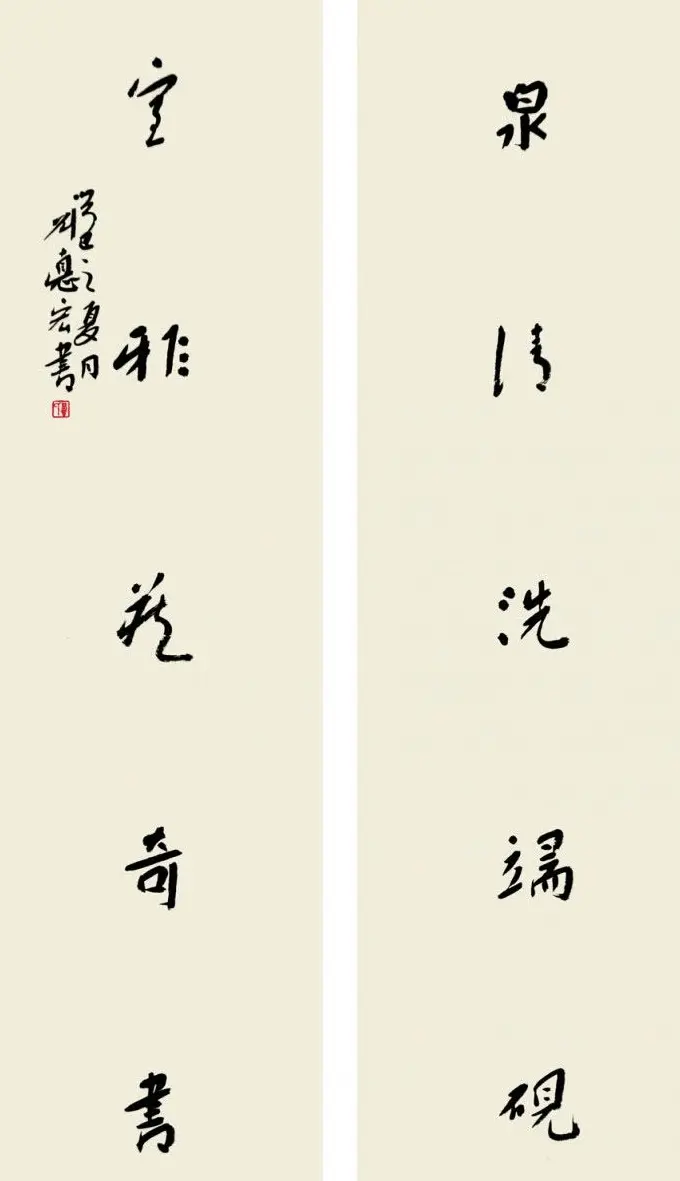 泉清洗端硯
室雅藏奇書
癸巳之夏月
惪宏書